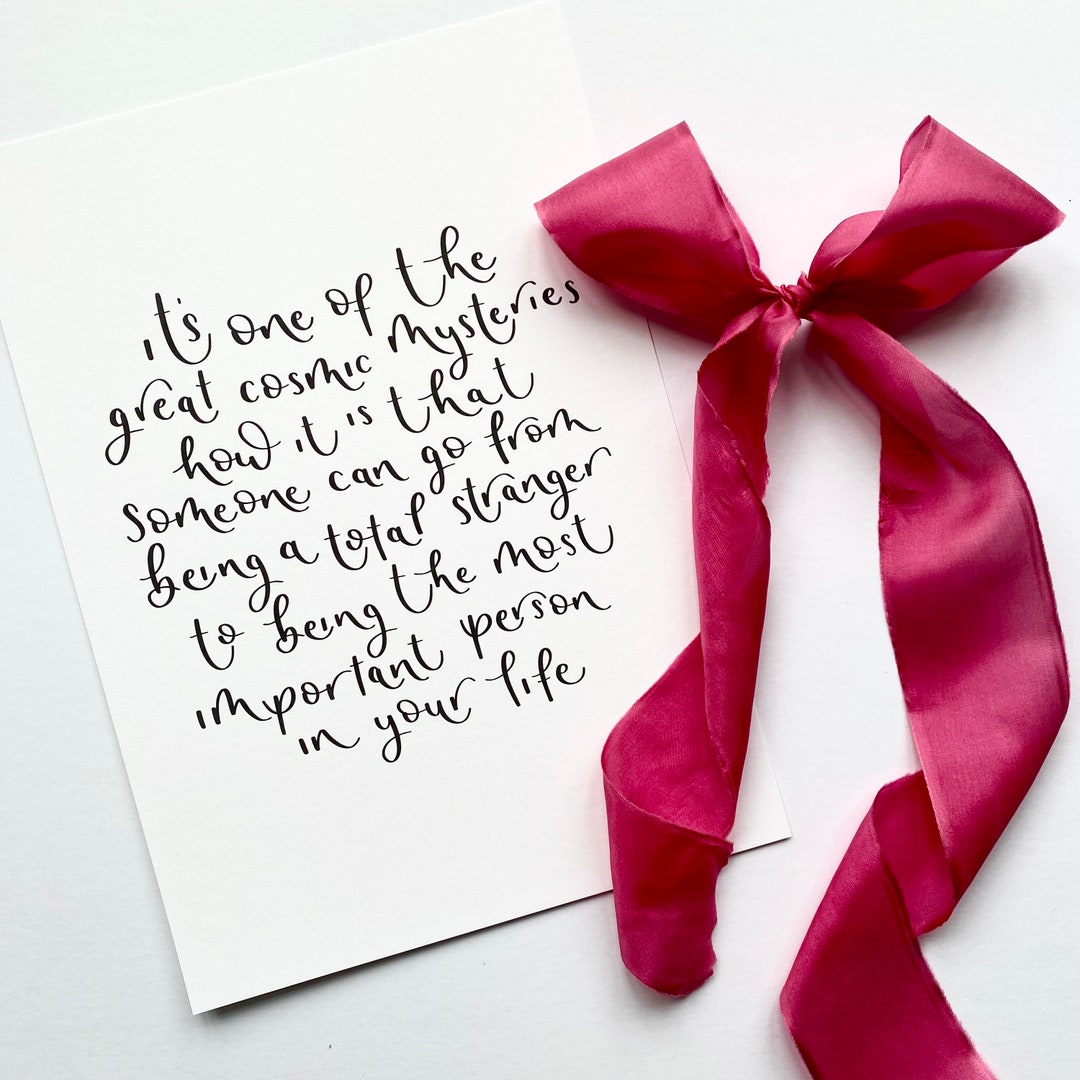 it's one of the
great cosmic mysteries
how it is that
someone can go from
being a total stranger
to being the most
important person
in your life